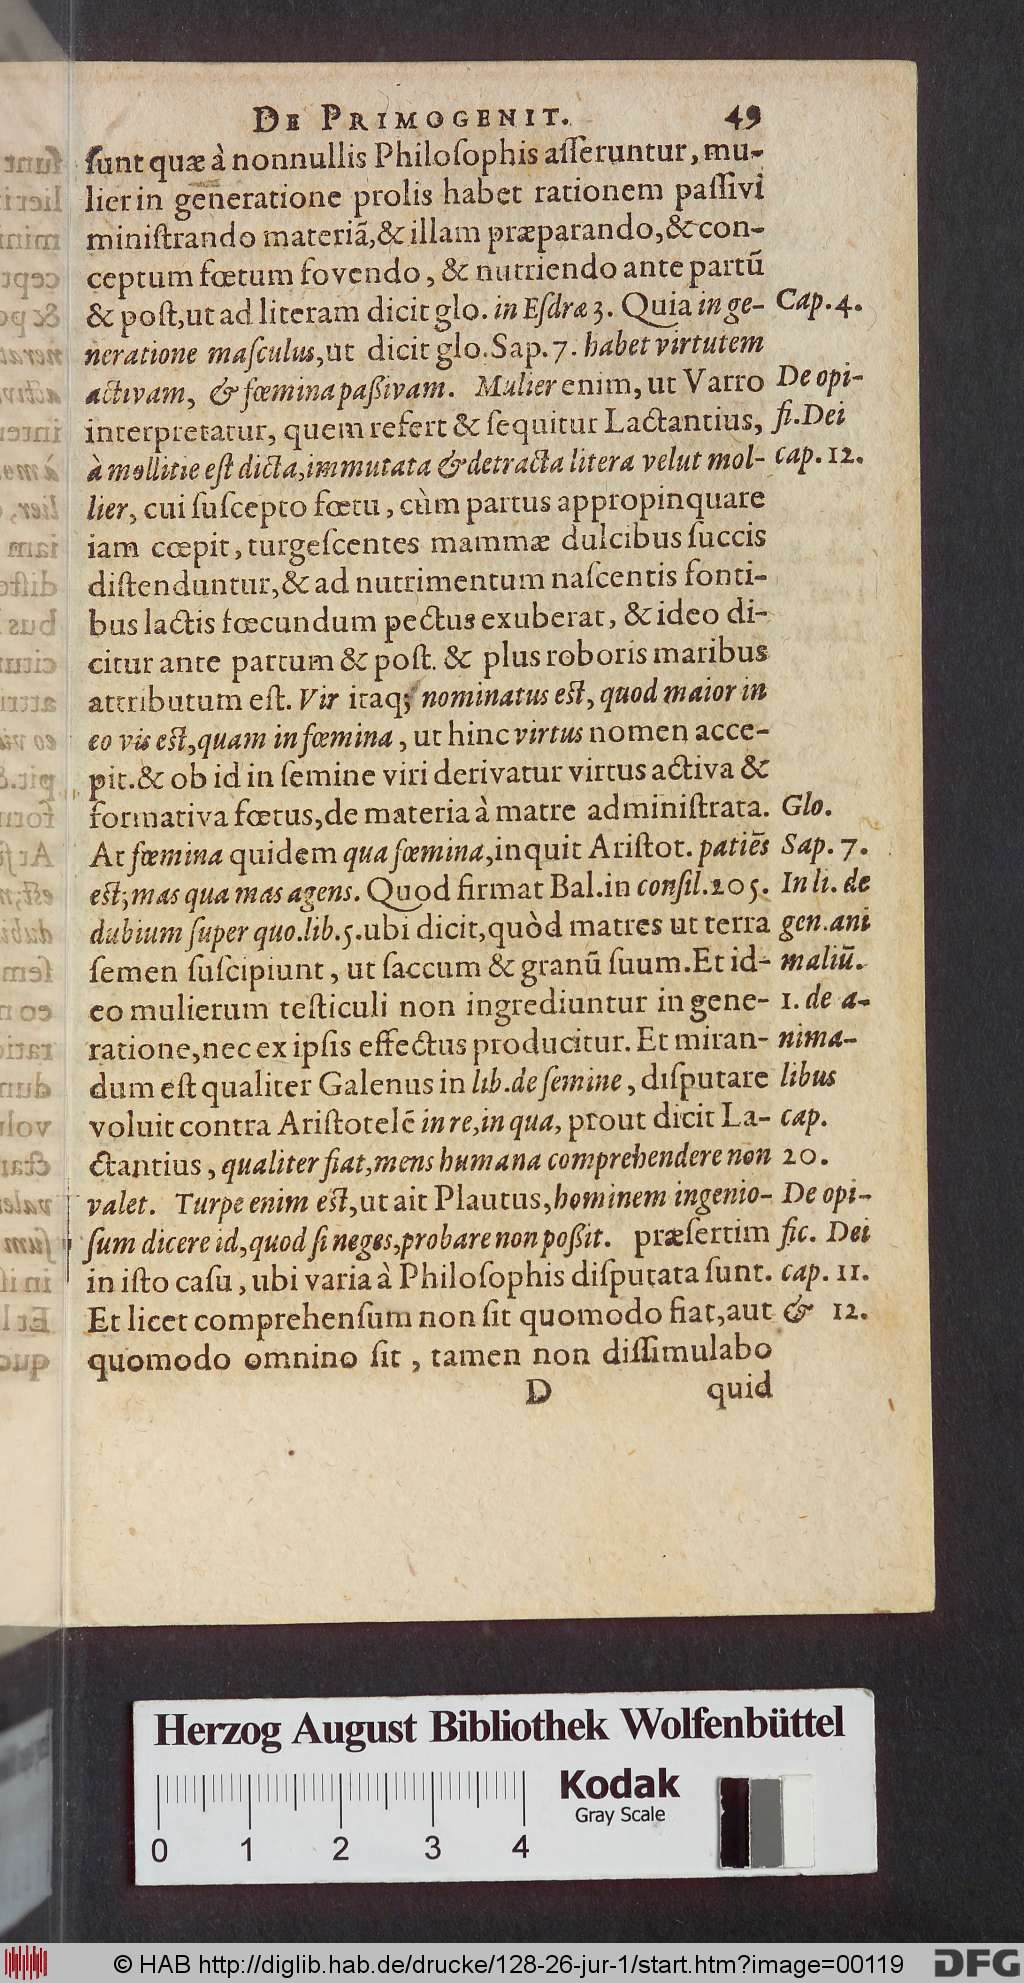 DE PRIMOGENIT. 49
ſunt quæ à nonnullis Philoſophis aſſeruntur, mu-
lier in generatione prolis habet rationem paſſivi
miniſtrando materiã,& illam præparando,& con-
ceptum fœtum fovendo, & nutriendo ante partũ
& poſt,ut ad literam dicit glo. in Eſdræ 3. Quia in ge- Cap. 4.
neratione maſculus,ut dicit glo.Sap.7. habet virtutem
activam, & fœmina paßivam. Mulier enim, ut Varro De opi-
interpretatur, quem refert & ſequitur Lactantius, fi.Dei
à mollitie eſt dicta,immutata & detracta litera velut mol- cap. 12.
lier, cui ſuſcepto fœtu, cùm partus appropinquare
iam cœpit, turgeſcentes mammæ dulcibus ſuccis
diſtenduntur,& ad nutrimentum naſcentis fonti-
bus lactis fœcundum pectus exuberat, & ideo di-
citur ante partum & poſt. & plus roboris maribus
attributum eſt. Vir itaq; nominatus eſt, quod maior in
eo vis eſt,quam in fœmina, ut hinc virtus nomen acce-
pit.& ob id in ſemine viri derivatur virtus activa &
formativa fœtus,de materia à matre adminiſtrata. Glo.
At fœmina quidem qua fœmina,inquit Ariſtot. patiẽs Sap. 7.
eſt;mas qua mas agens. Quod firmat Bal.in conſil.205. In li. de
dubium ſuper quo.lib.5.ubi dicit,quòd matres ut terra gen.ani
ſemen ſuſcipiunt, ut ſaccum & granũ ſuum.Et id- maliũ.
eo mulierum teſticuli non ingrediuntur in gene- 1. de a-
ratione,nec ex ipſis effectus producitur. Et miran- nima-
dum eſt qualiter Galenus in lib.de ſemine, diſputare libus
voluit contra Ariſtotelẽ in re,in qua, prout dicit La- cap.
ctantius, qualiter fiat,mens humana comprehendere non 20.
valet. Turpe enim eſt,ut ait Plautus,hominem ingenio- De opi-
ſum dicere id,quod ſi neges,probare non poßit. præſertim fic. Dei
in iſto caſu, ubi varia à Philoſophis diſputata ſunt. cap. 11.
Et licet comprehenſum non ſit quomodo fiat,aut & 12.
quomodo omnino ſit, tamen non diſſimulabo
D quid
Herzog August Bibliothek Wolfenbüttel
Kodak
Gray Scale
0 1 2 3 4
© HAB http://diglib.hab.de/drucke/128-26-jur-1/start.htm?image=00119 DFG